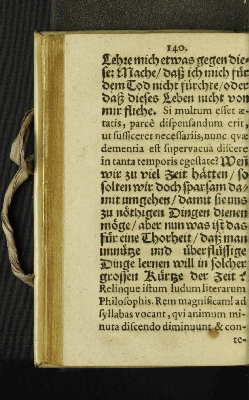 140.
Lehre mich etwas gegen die-
se: Mache / daß ich mich für
dem Tod nicht fürchte / oder
daß dieses Leben nicht von
mir fliehe. Si multum esset æ-
tatis, parcè dispensandum erit,
ut sufficeret necessariis, nunc quæ
dementia est supervacua discere
in tanta temporis egestate? Wen
wir zu viel Zeit hätten / so
solten wir doch sparsam da-
mit umgehen / damit sie uns
zu nöthigen Dingen dienen
möge / aber nun was ist das
für eine Thorheit / daß man
unnütze und überflüssige
Dinge lernen will in solcher
grossen Kürtze der Zeit?
Relinque istum ludum literarum
Philosophis. Rem magnificam! ad
syllabas vocant, qvi animum mi-
nuta discendo diminuunt & con-
te-